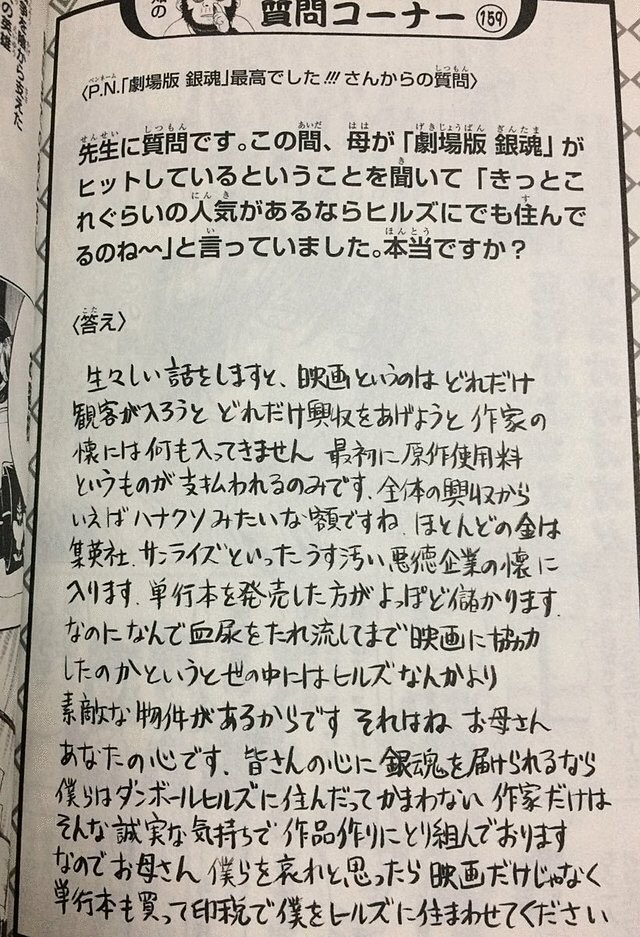 質問コーナー 159
〈P.N.「劇場版 銀魂」最高でした!!! さんからの質問〉
先生に質問です。この間、母が「劇場版 銀魂」が
ヒットしているということを聞いて「きっとこ
れぐらいの人気があるならヒルズにでも住んで
るのね〜〜」と言っていました。本当ですか?
〈答え〉
生々しい話をしますと、映画というのは どれだけ
観客が入ろうと どれだけ興収をあげようと 作家の
懐には何も入ってきません 最初に原作使用料
というものが支払われるのみです、全体の興収から
いえばハナクソみたいな額ですね、ほとんどの金は
集英社、サンライズといったうす汚い悪徳企業の懐に
入ります、単行本を発売した方がよっぽど儲かります、
なのになんで血尿をたれ流してまで映画に協力
したのかというと世の中にはヒルズなんかより
素敵な物件があるからです それはね お母さん
あなたの心です、皆さんの心に銀魂を届けられるなら
僕らはダンボールヒルズに住んだってかまわない 作家だけは
そんな誠実な気持ちで作品作りにとり組んでおります
なのでお母さん 僕らを哀れと思ったら映画だけじゃなく
単行本も買って印税で僕をヒルズに住まわせてください